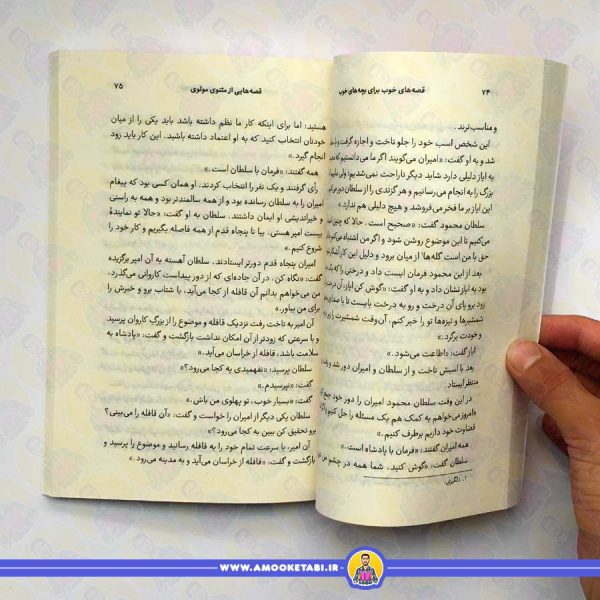 ۷۴ قصه‌های خوب برای بچه‌های خوب
و مناسب‌ترند.
این شخص اسب خود را جلو تاخت و اجازه گرفت و با
شد و به او گفت: «امیران می‌گویند اگر ما می‌دانستیم که
به ایاز دلیلی دارد شاید دیگر ناراحت نمی‌شدیم؛ ولی
بزرگ را به انجام می‌رسانیم و هر گزندی را از سلطان دور
این ایاز بر ما فخر می‌فروشد و هیچ دلیلی هم ندارد.»
سلطان محمود گفت: «صحیح است. حالا که چنین است
می‌کنیم تا این موضوع روشن شود و اگر من اشتباه
حق با من است گله‌ها از میان برود و دلیل این کار
بعد از این محمود فرمان ایست داد و درختی را که
بود به ایاز نشان داد و به او گفت: «گوش کن ایاز،
زود برو پای آن درخت و رو به درخت بایست تا
شمشیرها و نیزه‌ها تو را خبر کنیم، آن وقت شمشیرت را
و خودت برگرد.»
ایاز گفت: «اطاعت می‌شود.»
بعد با اسبش تاخت و از سلطان و امیران دور شد و
منتظر ایستاد.
در این وقت سلطان محمود امیران را دور خود جمع
«امروز می‌خواهم به کمک هم یک مسئله را حل کنیم
قضاوت خود داریم برطرف کنیم.»
همه امیران گفتند: «فرمان با پادشاه است.»
سلطان گفت: «گوش کنید، شما همه در چشم من
۱. دلگیری.
قصه‌هایی از مثنوی مولوی ۷۵
هستید؛ اما برای اینکه کار ما نظم داشته باشد باید یکی را از میان
خودتان انتخاب کنید که به او اعتماد داشته باشید. این کار باید زود
انجام گیرد.»
همه گفتند: «فرمان با سلطان است.»
رأی گرفتند و یک نفر را انتخاب کردند. او همان کسی بود که پیغام
امیران را به سلطان رسانده بود و از همه سالمندتر بود و همه به راستی
و خیراندیشی او ایمان داشتند. سلطان به او گفت: «حالا تو نمایندهٔ
بیست امیر هستی. بیا تا پنجاه قدم از همه فاصله بگیریم و کار خود را
شروع کنیم.»
امیران پنجاه قدم دورتر ایستادند. سلطان آهسته به آن امیر برگزیده
گفت: «نگاه کن، در آن جاده‌ای که از دور پیداست کاروانی می‌گذرد.
من می‌خواهم بدانم آن قافله از کجا می‌آید، با شتاب برو و خبرش را
برای من بیاور.»
آن امیر به تاخت رفت نزدیک قافله و موضوع را از بزرگ کاروان پرسید
و با سرعتی که زودتر از آن امکان نداشت بازگشت و گفت: «پادشاه به
سلامت باشد، قافله از خراسان می‌آید.»
سلطان پرسید: «نفهمیدی به کجا می‌رود؟»
گفت: «نپرسیدم.»
گفت: «بسیار خوب، تو پهلوی من باش.»
سلطان یکی دیگر از امیران را خواست و گفت: «آن قافله را می‌بینی؟
برو تحقیق کن ببین به کجا می‌رود؟»
آن امیر، با سرعت تمام خود را به قافله رسانید و موضوع را پرسید و
بازگشت و گفت: «قافله از خراسان می‌آید و به مدینه می‌رود.»
WWW.AMOOKETABI.IR